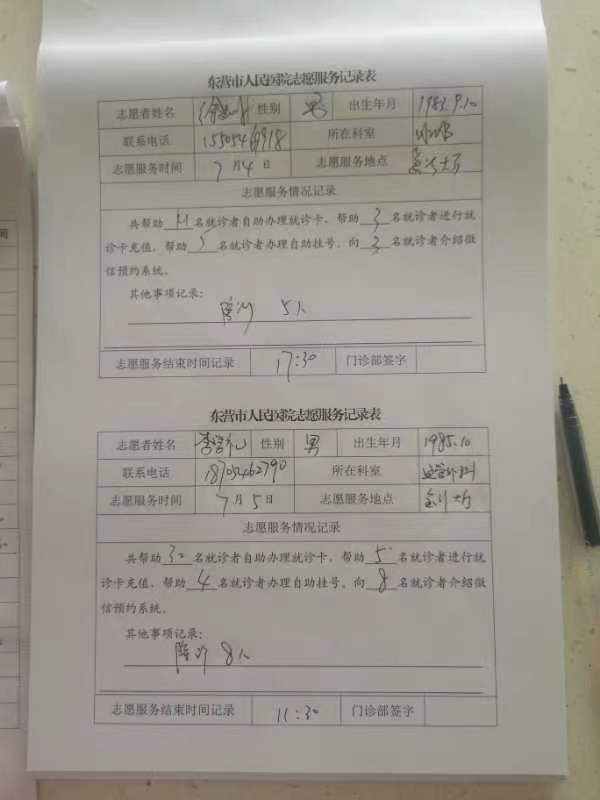 东营市人民医院志愿服务记录表
志愿者姓名 性别 男 出生年月 1983.9.10
联系电话 所在科室
志愿服务时间 7月4日 志愿服务地点 门诊大厅
志愿服务情况记录
共帮助 11 名就诊者自助办理就诊卡、帮助 3 名就诊者进行就
诊卡充值、帮助 名就诊者办理自助挂号、向 3 名就诊者介绍微
信预约系统。
其他事项记录:
陪诊 5人
志愿服务结束时间记录 17:30 门诊部签字
东营市人民医院志愿服务记录表
志愿者姓名 李 性别 男 出生年月 1985.10
联系电话 18705462790 所在科室 血管外科
志愿服务时间 7月5日 志愿服务地点 门诊大厅
志愿服务情况记录
共帮助 30 名就诊者自助办理就诊卡、帮助 5 名就诊者进行就
诊卡充值、帮助 4 名就诊者办理自助挂号、向 8 名就诊者介绍微
信预约系统。
其他事项记录:
陪诊 8人
志愿服务结束时间记录 11:30 门诊部签字